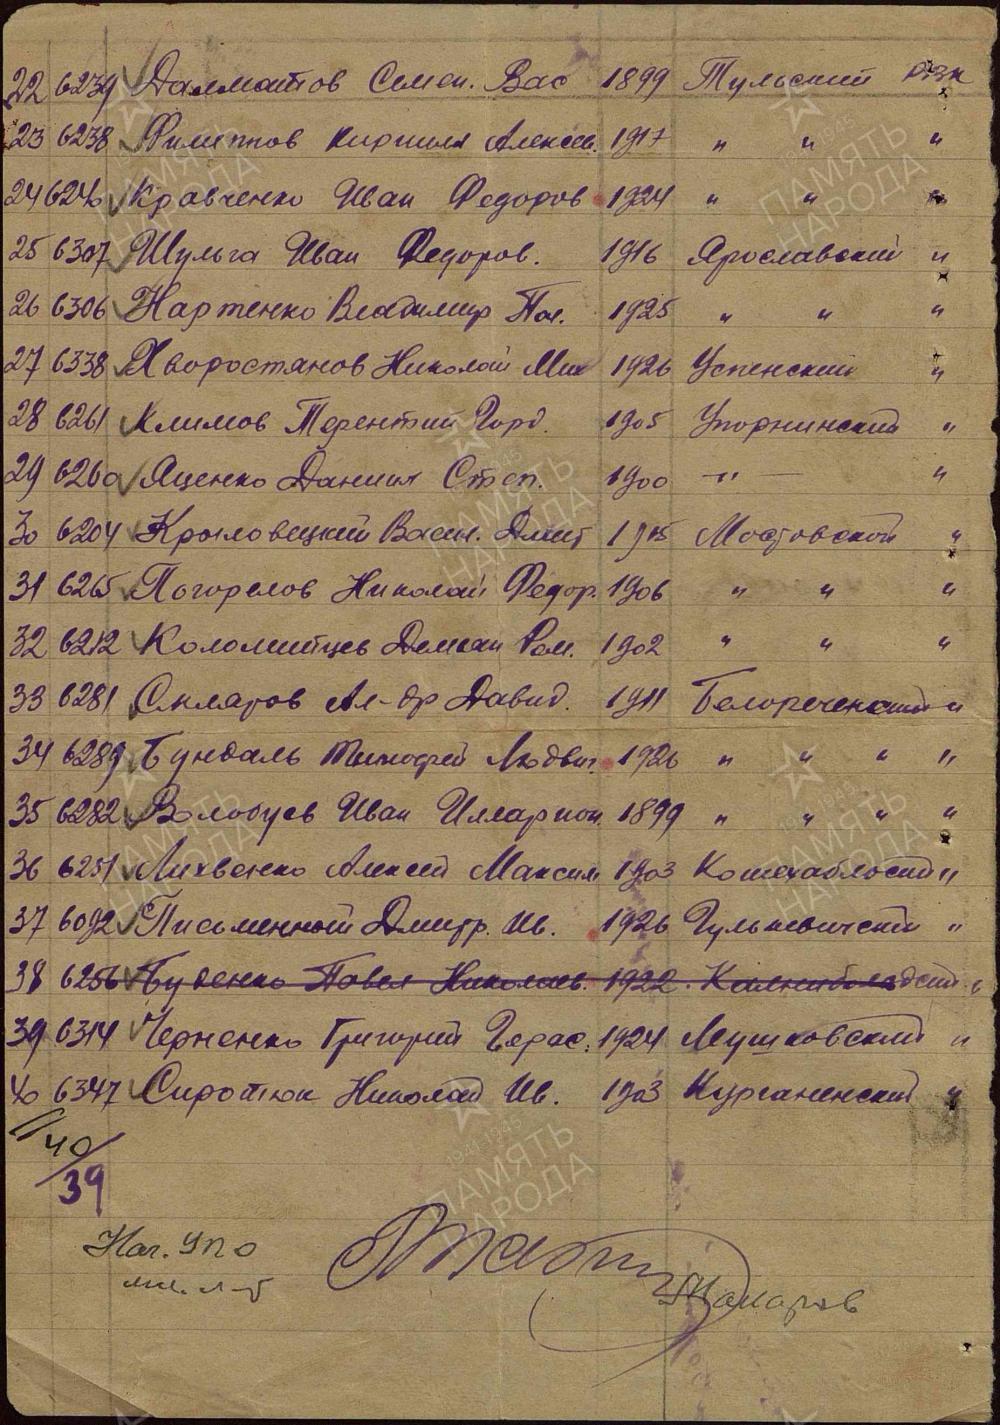 22 6239 Далматов Семен. Вас 1899 Тульский РВК
23 6238 Филиппов Кирилл Алексеев. 1917 " " "
24 6240 Кравченко Иван Федоров 1924 " " "
25 6307 Шульга Иван Федоров. 1916 Ярославский "
26 6306 Картенко Владимир Пав. 1925 " " "
27 6338 Хворостянов Николай Мих 1926 Успенский "
28 6261 Климов Терентий Горд. 1905 Упорнинский "
29 6260 Яценко Даниил Степ. 1900 — " — "
30 6204 Крыловецкий Васил. Дмит 1915 Мостовской "
31 6265 Погорелов Николай Федор. 1906 " " "
32 6212 Коломийцев Демьян Ром. 1902 " " "
33 6281 Скляров Ал-др Давид. 1911 Белореченский "
34 6289 Бундаль Тимофей Людвиг. 1926 " " " "
35 6282 Волобуев Иван Илларион 1899 " " " "
36 6251 Лихвенко Алексей Максим 1903 Кошехабльский "
37 6092 Письменный Дмитр. Ив. 1926 Гулькевичский "
38 6256 Буденко Павел Николаев. 1922 "
39 6314 Черненко Григорий Герас. 1924 "
40 6347 Сиротюк Николай Ив. 1903 Курганенский "
40/39
Нач. УПО
мл. л-т
Макаров
ПАМЯТЬ НАРОДА
1941-1945